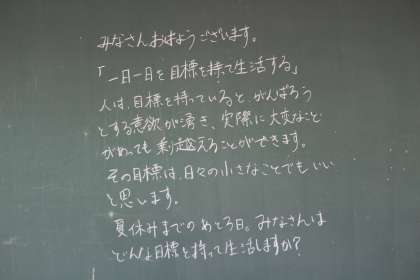 みなさんおはようございます。
「一日一日を目標を持て生活する」
人は、目標を持っていると、がんばろう
とする意欲が湧き、実際に大変なこと
があっても乗り越えることができます。
その目標は、日々の小さなことでもいい
と思います。
夏休みまでのあと3日。みなさんは
どんな目標を持って生活しますか?